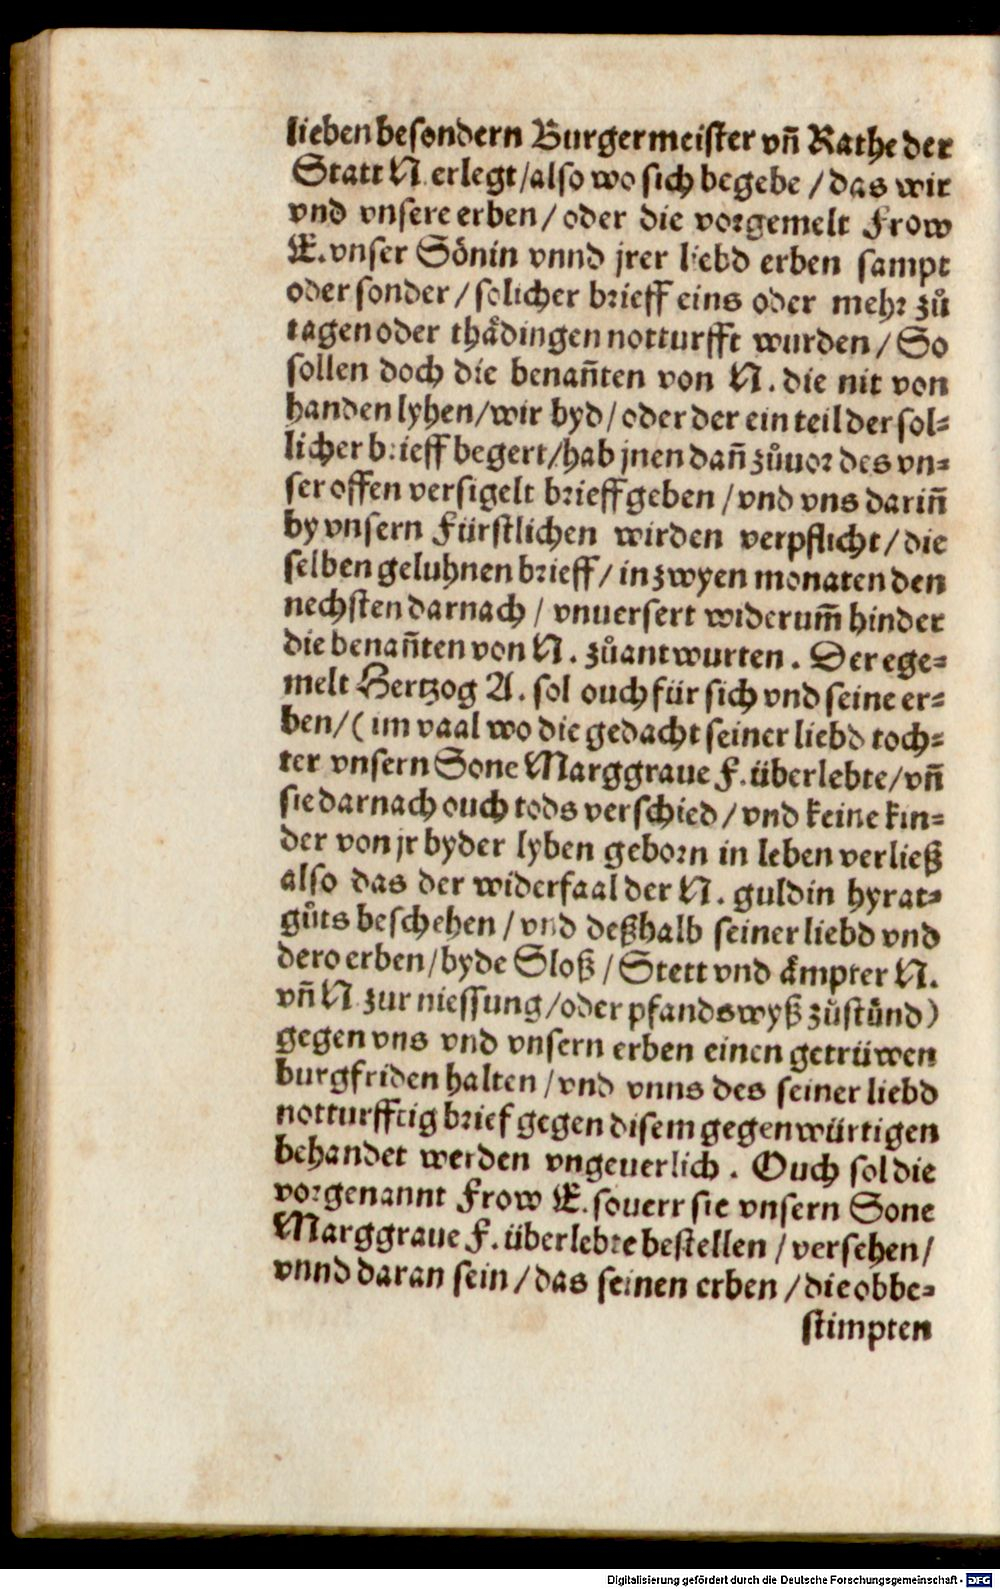 lieben besondern Burgermeister vn̄ Rathe der
Statt N. erlegt / also wo sich begebe / das wir
vnd vnsere erben / oder die vorgemelt Frow
E. vnser Sönin vnnd jrer liebd erben sampt
oder sonder / solicher brieff eins oder mehr zů
tagen oder thådingen notturfft wurden / So
sollen doch die benan̄ten von N. die nit von
handen lyhen / wir byd / oder der ein teil der sol⸗
licher brieff begert / hab jnen dan̄ zůuor des vn⸗
ser offen versigelt brieff geben / vnd vns darin̄
by vnsern Fürstlichen wirden verpflicht / die
selben geluhnen brieff / in zwyen monaten den
nechsten darnach / vnuersert widerum̄ hinder
die benan̄ten von N. zůantwurten. Der ege⸗
melt Hertzog A. sol ouch für sich vnd seine er⸗
ben / (im vaal wo die gedacht seiner liebd toch⸗
ter vnsern Sone Marggraue F. überlebte / vn̄
sie darnach ouch tods verschied / vnd keine kin⸗
der von jr byder lyben geborn in leben verließ
also das der widerfaal der N. guldin hyrat⸗
gůts beschehen / vnd deßhalb seiner liebd vnd
dero erben / byde Sloß / Stett vnd åmpter N.
vn̄ N zur niessung / oder pfandswyß zůstünd)
gegen vns vnd vnsern erben einen getrüwen
burgfriden halten / vnd vnns des seiner liebd
notturfftig brief gegen disem gegenwürtigen
behandet werden vngeuerlich. Ouch sol die
vorgenannt Frow E. souerr sie vnsern Sone
Marggraue F. überlebte bestellen / versehen /
vnnd daran sein / das seinen erben / die obbe⸗
stimpten
Digitalisierung gefördert durch die Deutsche Forschungsgemeinschaft - DFG